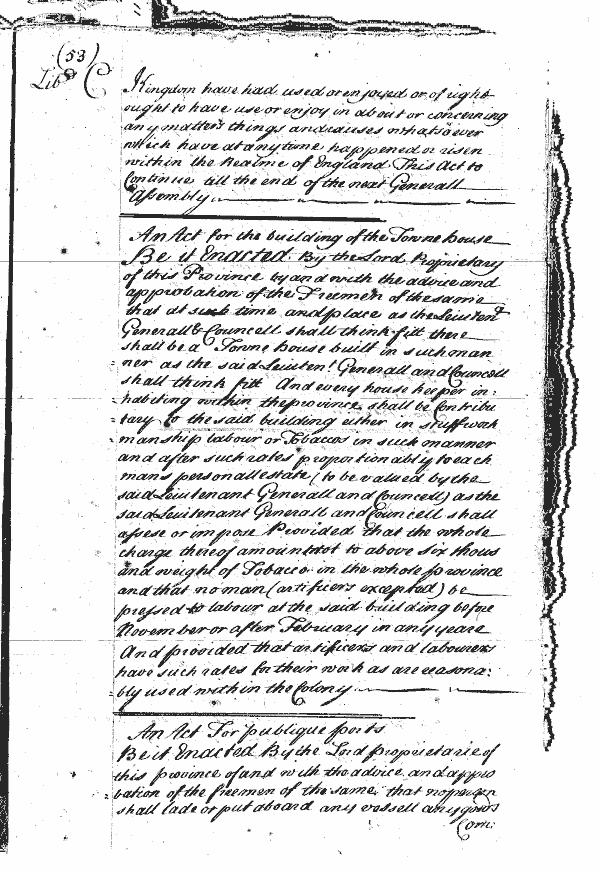 (53)
Lib C
Kingdom have had used or enjoyed or of right
ought to have use or enjoy in about or concerning
any matters things and causes whatsoever
which have at any time happened or risen
within the Realme of England This Act to
Continue till the end of the next Generall
Assembly
An Act for the building of the Towne house
Be it Enacted. By the Lord Proprietary
of this Province by and with the advice and
approbation of the Freemen of the same
that at such time and place as the Lieutent
Generall & Councell shall think fitt there
shall be a Towne house built in such man
ner as the said Lieuten! Generall and Councell
shall think fitt And every house keeper in:
habiting within the province shall be Contribu
tary to the said building either in stuff work
manship labour or Tobaccos in such manner
and after such rates proportionably to each
mans personall estate (to be valued by the
said Lieutenant Generall and Councell) as the
said Lieutenant Generall and Councell shall
assesse or impose Provided that the whole
charge thereof amount not to above six thous
and weight of Tobacco in the whole province
and that no man (artificers excepted) be
pressed to labour at the said building before
November or after February in any yeare
And provided that artificers and labourers
have such rates for their work as are reasona:
bly used within the Colony
An Act For publique ports
Be it Enacted By the Lord proprietarie of
this province of and with the advice and appro
bation of the freemen of the same that no person
shall lade or put aboard any vessell any goods
Com: